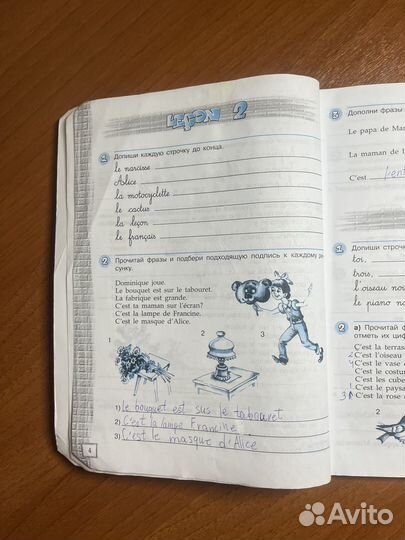 Leçon 2
1 Допиши каждую строчку до конца.
le narcisse
Alice
la motocyclette
le cactus
la leçon
le français
2 Прочитай фразы и подбери подходящую подпись к каждому
сунку.
Dominique joue.
Le bouquet est sur le tabouret.
La fabrique est grande.
C'est ta maman sur l'écran?
C'est la lampe de Francine.
C'est le masque d'Alice.
1
2
3.
1) Le bouquet est sus le tabouret
2) C'est la lampe Francine
3) C'est le masque d'Alice
4
3 Дополни фразы
Le papa de Mar
La maman de L
C'est
1 Допиши строчк
toi,
trois,
l'oiseau
le piano
2 а) Прочитай ф
отметь их циф
C'est la terras
2 C'est l'oiseau
C'est le vase
C'est le costu
C'est les cube
1 C'est le paysa
3 C'est la rose
2
Avito